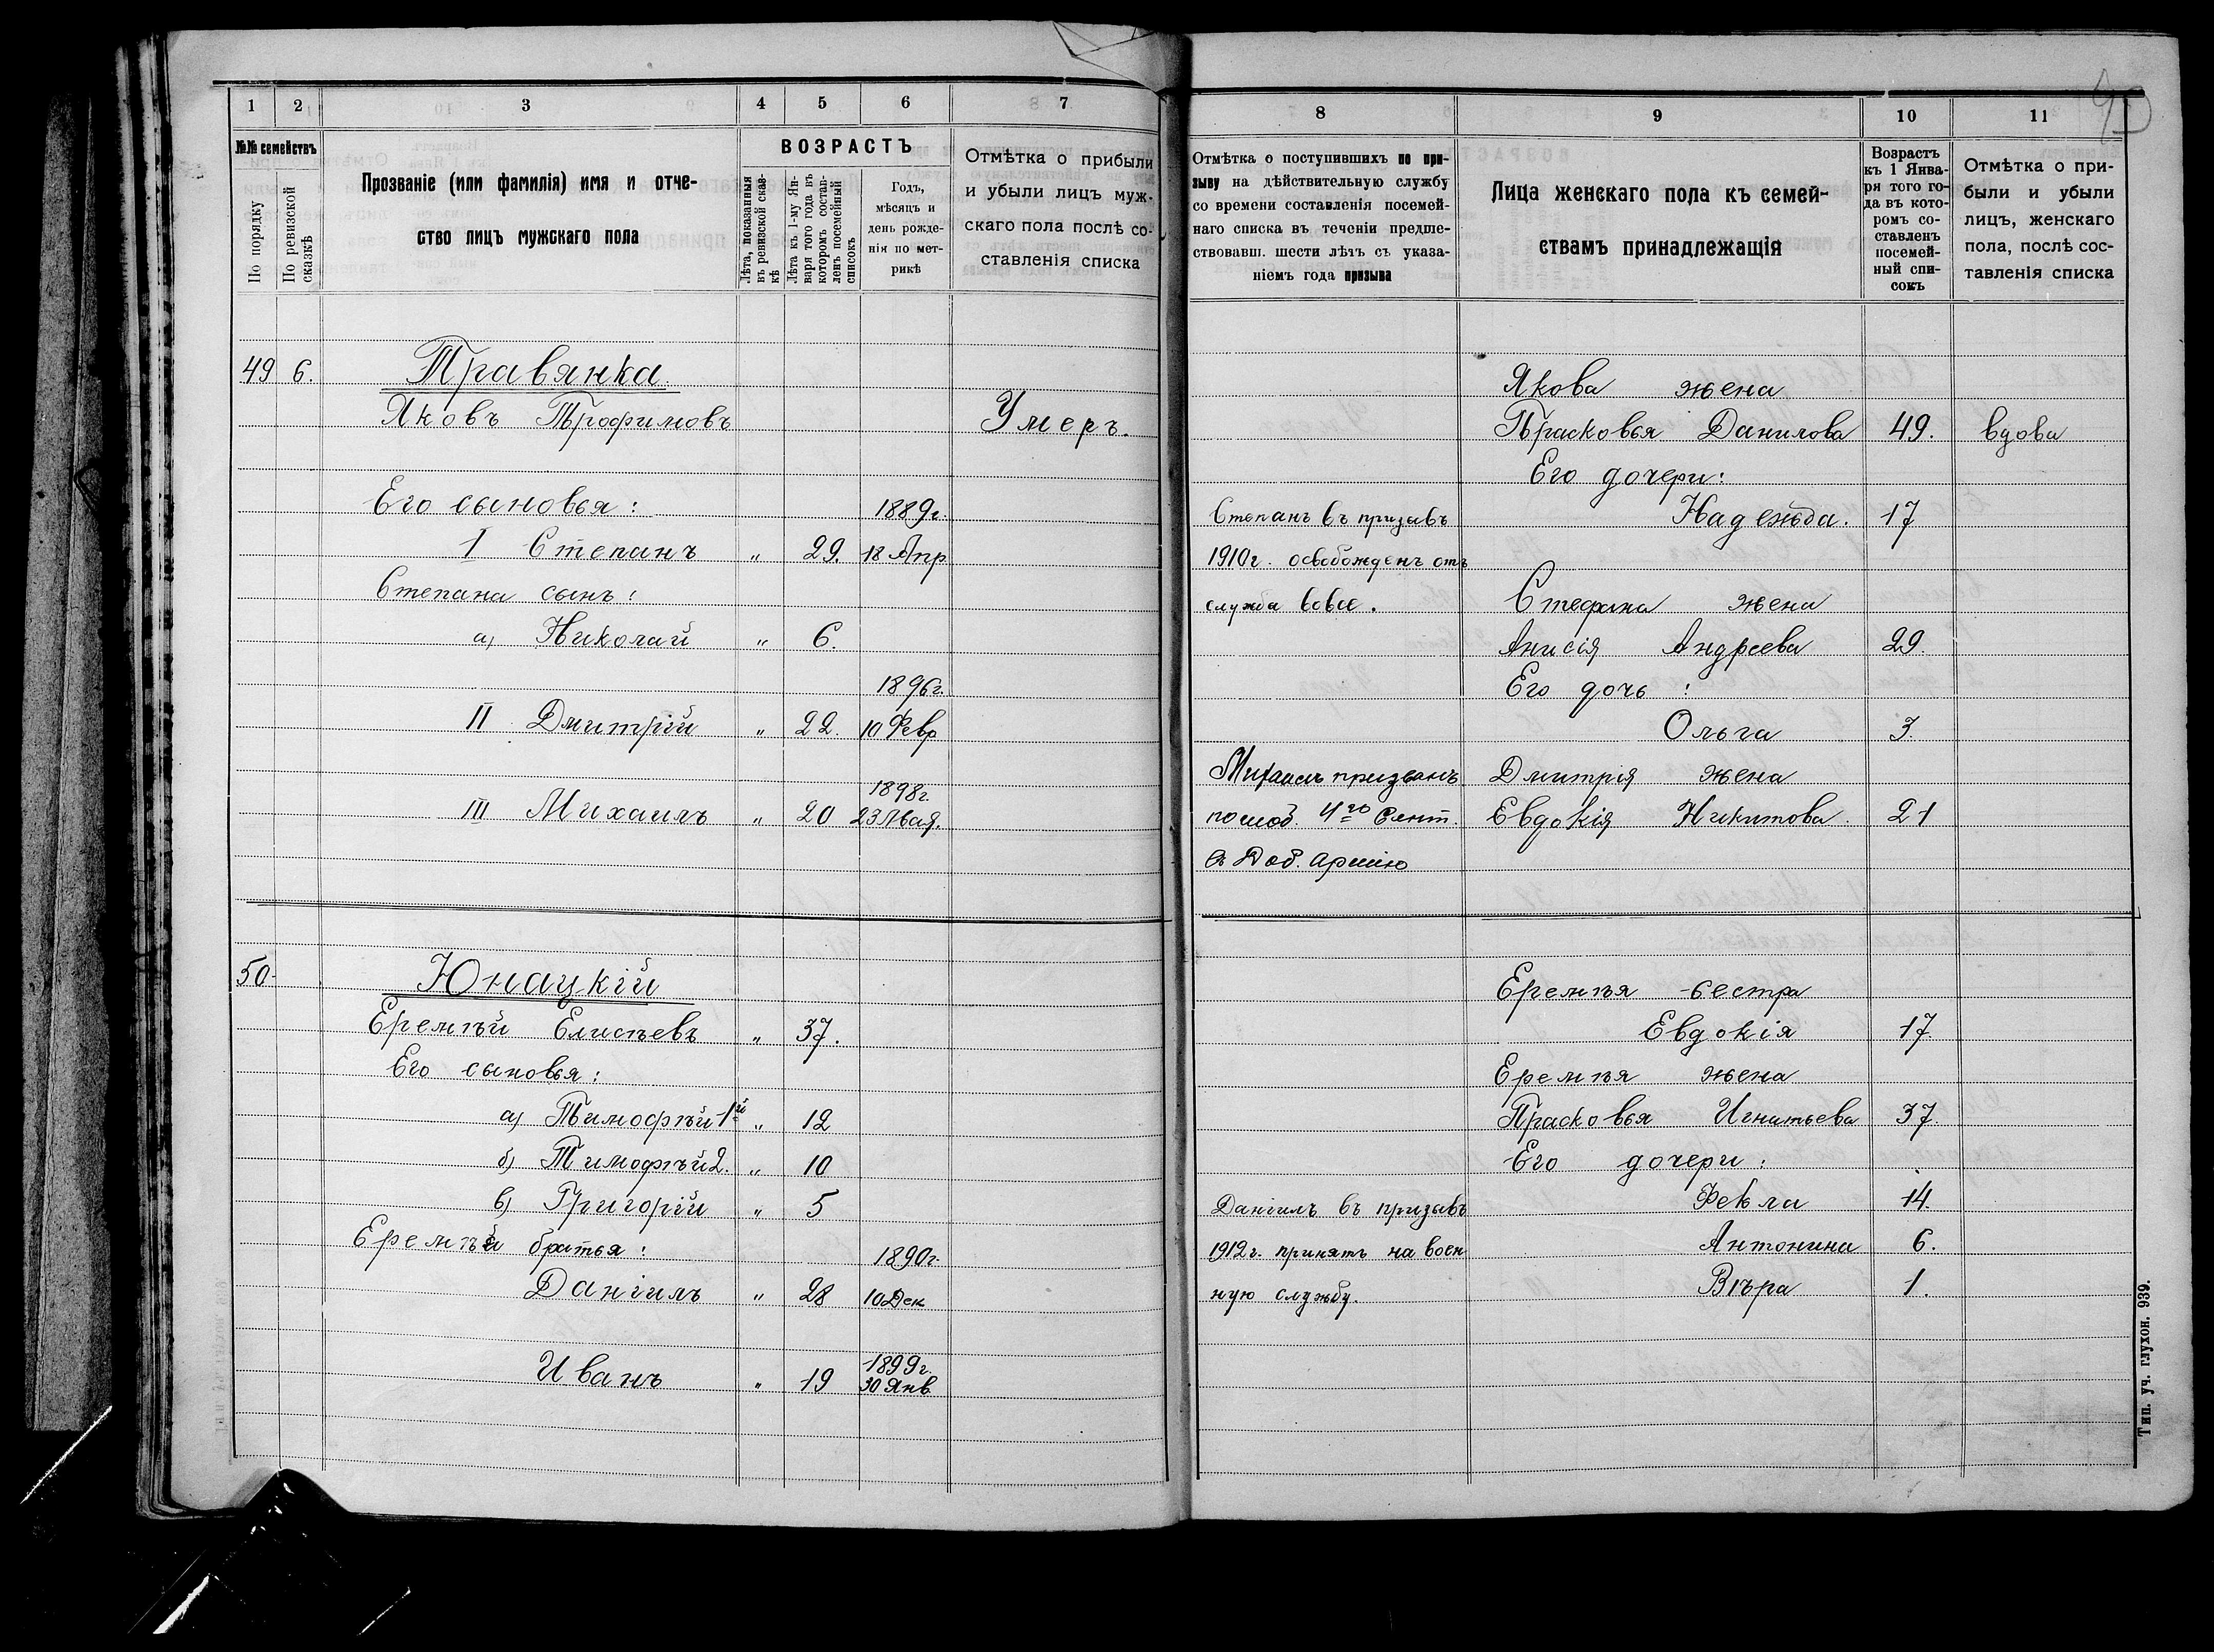 1 2 3 4 5 6 7
№№ семействъ
По порядку
По ревизской сказкѣ
Прозваніе (или фамилія) имя и отче-
ство лицъ мужскаго пола
ВОЗРАСТЪ
Лѣта, показанныя въ ревизской сказ-
кѣ
Лѣта къ 1-му Ян-
варя того года въ
которомъ состав-
ленъ посемейный
списокъ
Годъ,
мѣсяцъ и
день рожде-
нія по мет-
рикѣ
Отмѣтка о прибыли
и убыли лицъ муж-
скаго пола послѣ со-
ставленія списка
49 6. Травянка
Яковъ Трофимовъ Умеръ.
Его сыновья: 1889г.
I Степанъ „ 29. 18 Апр
Степана сынъ:
а) Николай „ 6.
1896г.
II Дмитрій „ 22. 10 Февр
1898г.
III Михаилъ „ 20 23 Мая.
50. Юнацкій
Еремѣй Елисѣевъ „ 37.
Его сыновья:
а) Тимофѣй 1й „ 12
б) Тимофѣй 2. „ 10
в) Григорій „ 5
Еремѣя братья: 1890г.
Даніилъ „ 28 10 Дек
1899г
Иванъ „ 19 30 Янв
8 9 10 11
Отмѣтка о поступившихъ по при-
зыву на дѣйствительную службу
со времени составленія посемей-
наго списка въ теченіи предше-
ствовавш. шести лѣтъ съ указа-
ніемъ года призыва
Лица женскаго пола къ семей-
ствамъ принадлежащія
Возрастъ
къ 1 Янва-
ря того го-
да въ кото-
ромъ со-
ставленъ
посемей-
ный спи-
сокъ
Отмѣтка о при-
были и убыли
лицъ, женскаго
пола, послѣ сос-
тавленія списка
Якова жена
Прасковья Данилова 49. вдова
Его дочери:
Степанъ въ призывъ Надежда. 17
1910г. освобожденъ отъ
служба вовсе. Стефана жена
Анисія Андреева 29.
Его дочь:
Ольга 3.
Михаилъ призванъ Дмитрія жена
по моб. 4го Сент. Евдокія Никитова. 21
в Доб. армію
Еремѣя сестра
Евдокія 17
Еремѣя жена
Прасковья Игнатьева 37.
Его дочери:
Даніилъ въ призывъ Фекла 14.
1912г. принятъ на воен Антонина 6.
ную службу. Вѣра 1.
Тип. уч. глухон. 939.